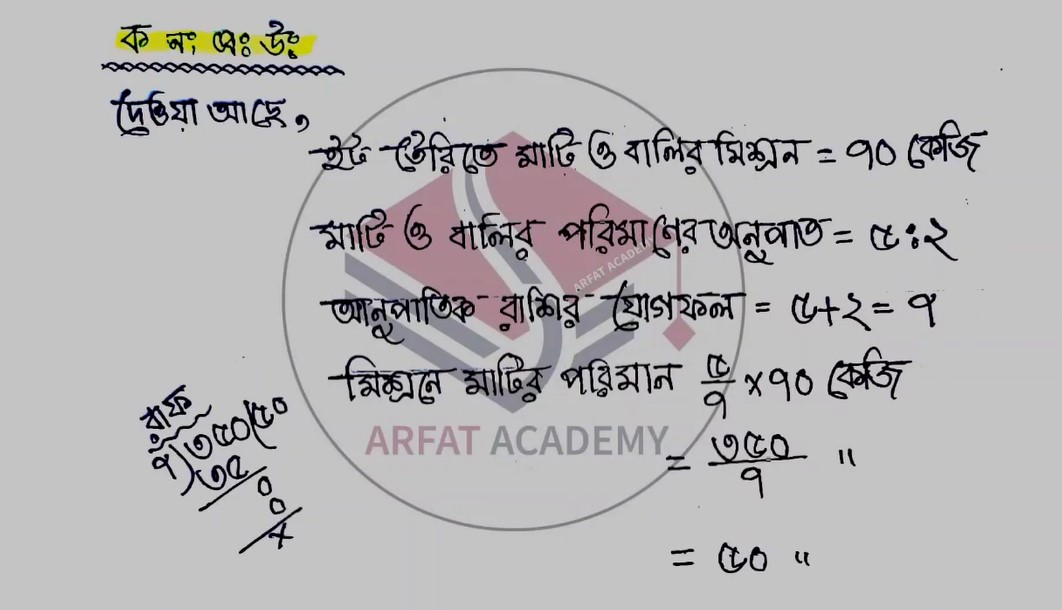 ক নং প্রঃ উঃ
দেওয়া আছে,
ইট তৈরিতে মাটি ও বালির মিশ্রন = ৭০ কেজি
মাটি ও বালির পরিমাণের অনুপাত = ৫:২
ARFAT ACADEMY
আনুপাতিক রাশির যোগফল = ৫+২ = ৭
মিশ্রনে মাটির পরিমান ৫/৭ × ৭০ কেজি
ARFAT ACADEMY
= ৩৫০/৭ "
= ৫০ "
রাফ
৭)৩৫০(৫০
৩৫
০
০
×